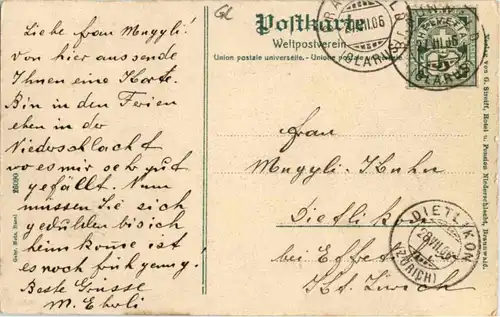 Liebe frau Muggli!
Von hier aus sende
Ihnen eine Karte.
Bin in den Ferien
eben in der
Niederschlacht
wo es mir sehr gut
gefällt. Nun
müssen Sie sich
gedulden bis ich
heim komme ist
es noch früh genug!
Beste Grüsse
M. Eberli
GL
Postkarte
Weltpostverein
Union postale universelle. - Unione postale universale
HELVETIA
27.VII.06
(GLARUS)
Frau
Muggli-Kuhn
Dietlikon
bei Effretikon
Kt. Zürich
DIETLIKON
28.VII.06
(ZÜRICH)
26090
Gebr. Metz, Basel
Verlag von G. Streiff, Hotel u. Pension Niederschlacht, Braunwald.